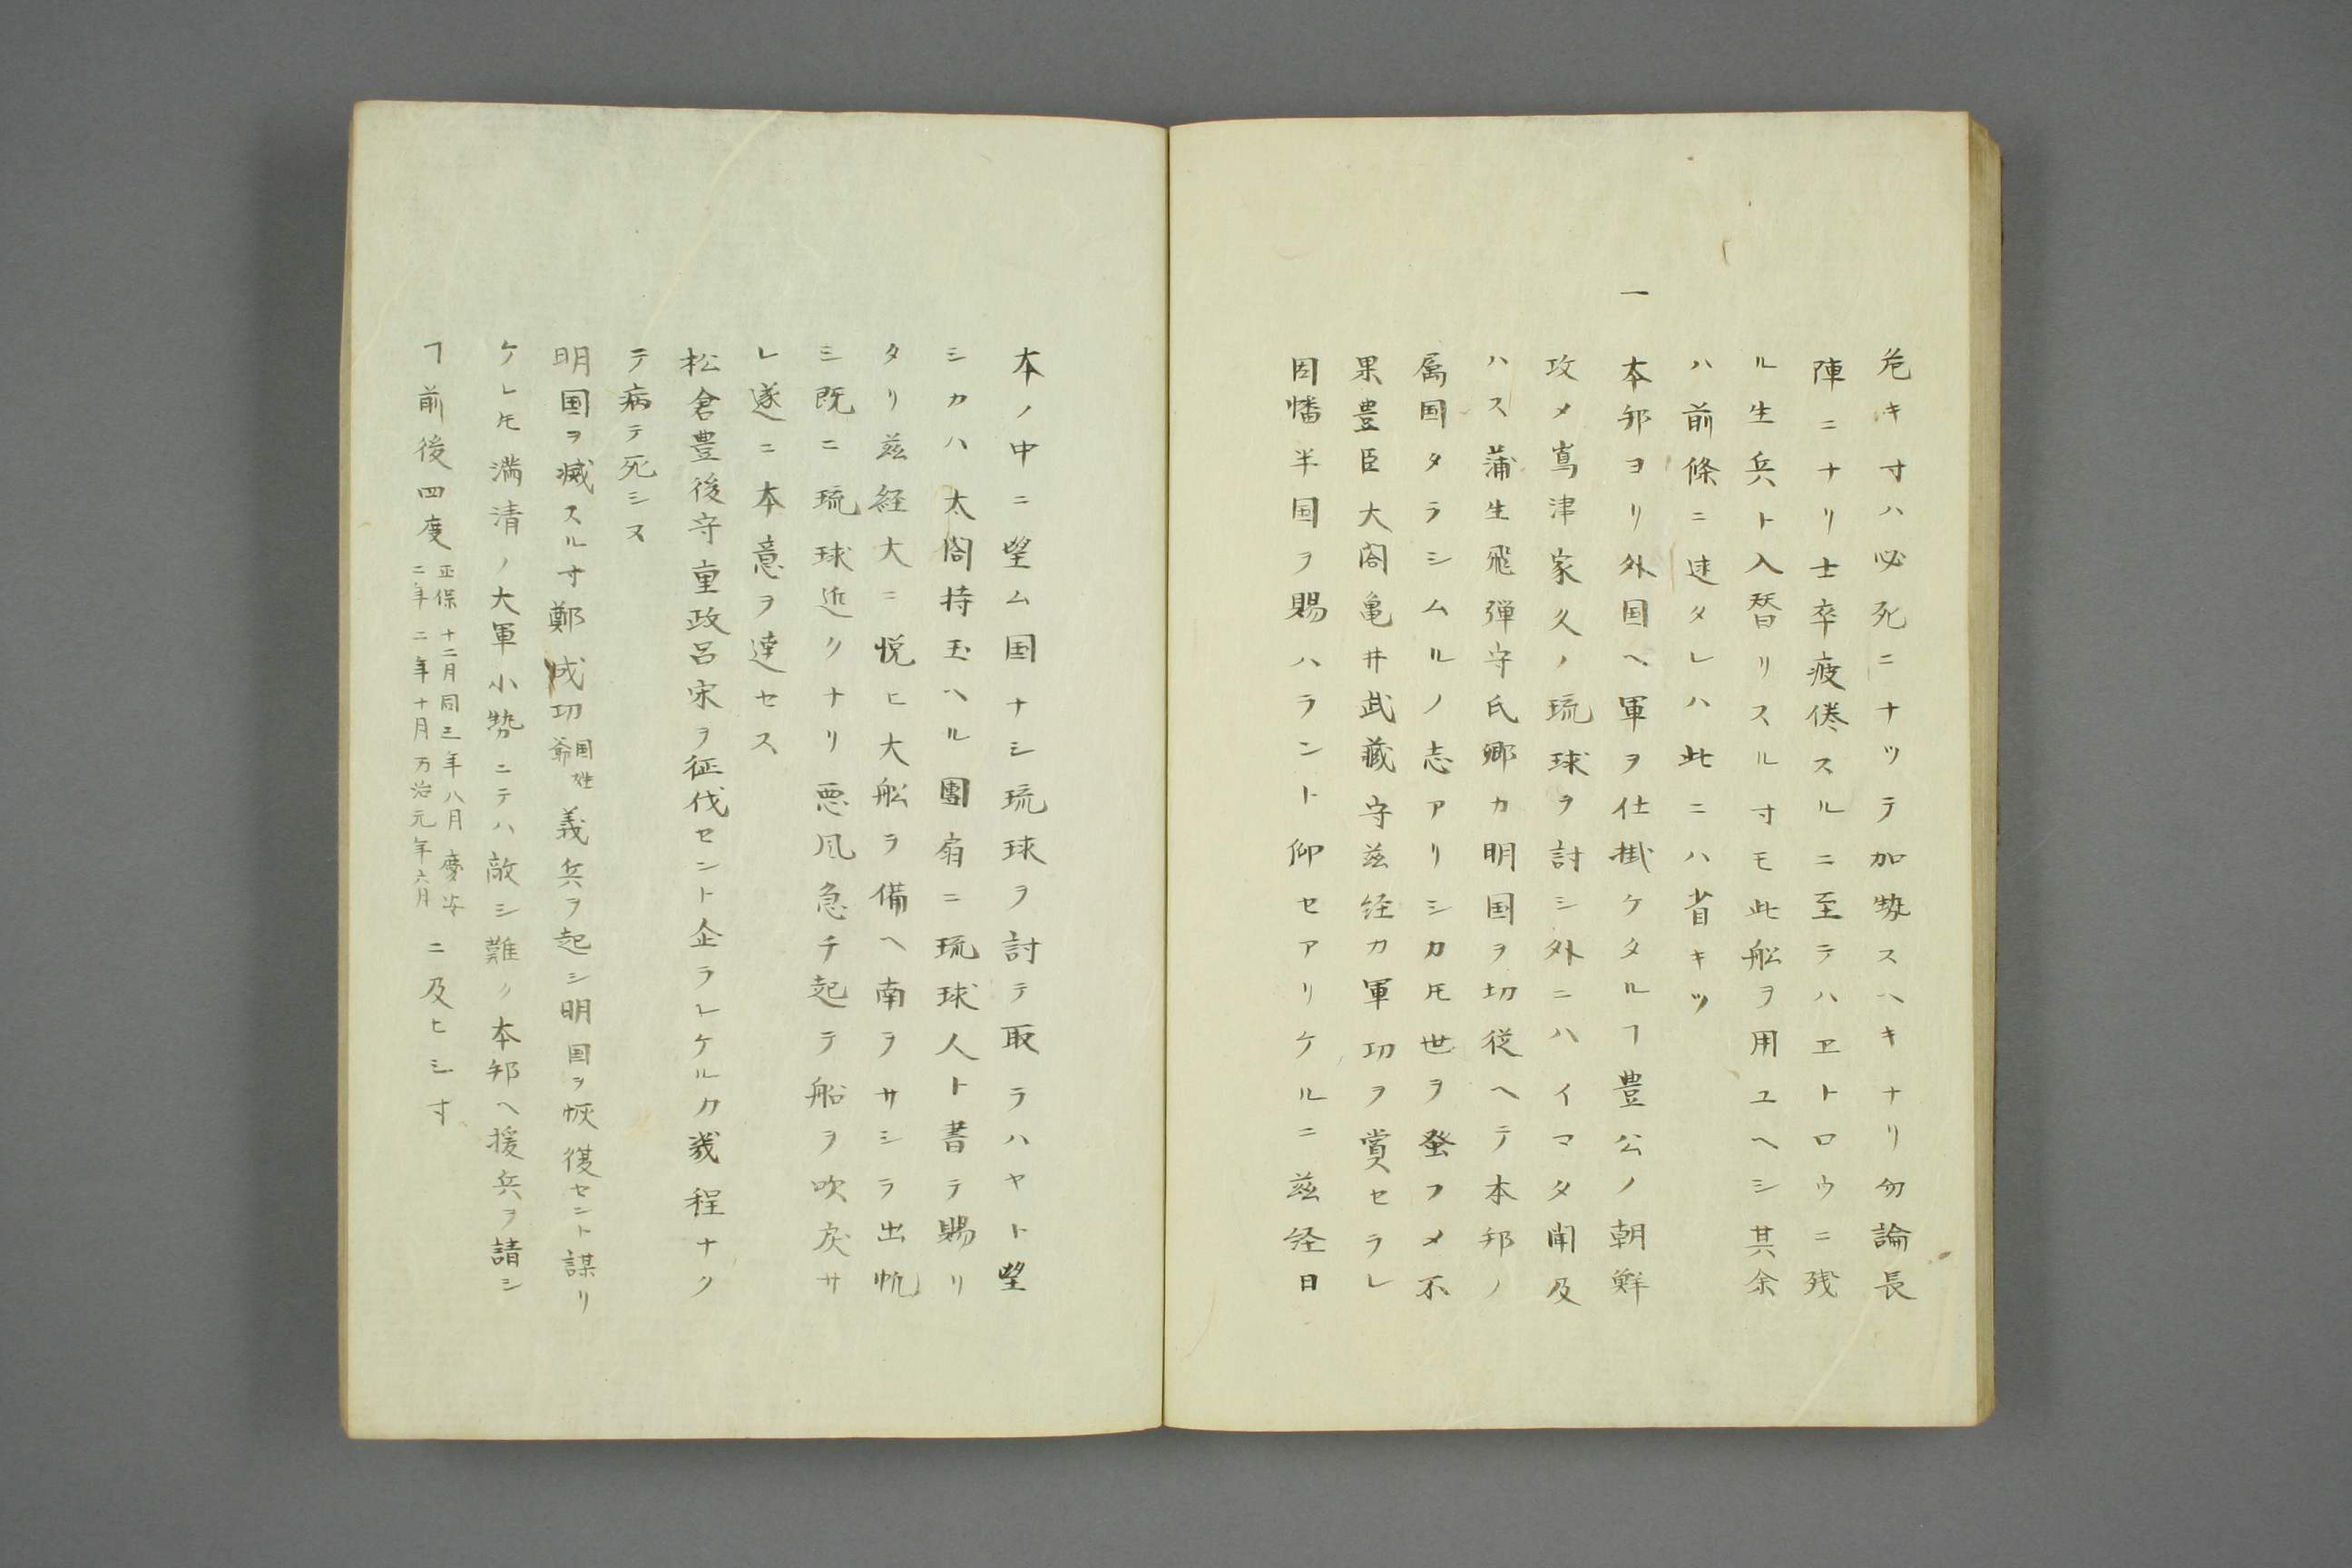 危キ寸ハ必死ニナツテ加勢スヘキナリ勿論長
陣ニナリ士卒疲倦スルニ至テハヱトロウニ残
ル生兵ト入替リスル寸モ此船ヲ用ユヘシ其余
ハ前條ニ述タレハ此ニハ省キツ
一本邦ヨリ外国ヘ軍ヲ仕掛ケタルヿ豊公ノ朝鮮
攻メ嶌津家久ノ琉球ヲ討シ外ニハイマタ聞及
ハス蒲生飛弾守氏郷カ明国ヲ切従ヘテ本邦ノ
属国タラシムルノ志アリシカ𪜈世ヲ發フメ不
果豊臣大閤亀井武藏守茲経カ軍功ヲ賞セラレ
因幡半国ヲ賜ハラント仰セアリケルニ茲経日
本ノ中ニ望ム国ナシ琉球ヲ討テ取ラハヤト望
シカハ太閤持玉ヘル團扇ニ琉球人ト書テ賜リ
タリ茲経大ニ悦ヒ大舩ヲ備ヘ南ヲサシテ出帆
シ既ニ琉球近クナリ悪風急チ起テ船ヲ吹戻サ
レ遂ニ本意ヲ達セス
松倉豊後守重政呂宋ヲ征伐セント企ラレケルカ幾程ナク
テ病テ死シヌ
明国ヲ滅スル寸鄭成功国姓爺義兵ヲ起シ明国ヲ恢復セント謀リ
ケレ𪜈満清ノ大軍小勢ニテハ敵シ難ク本邦ヘ援兵ヲ請シ
ヿ前後四度正保二年十二月同三年八月慶安二年十月万治元年六月ニ及ヒシ寸